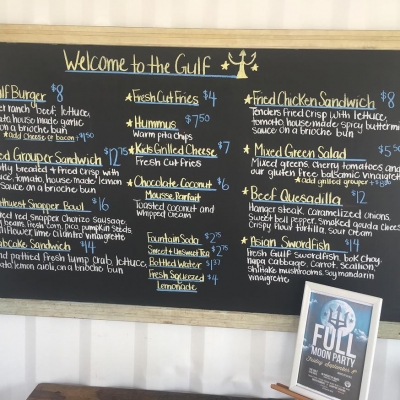 Welcome to the Gulf
Burger $8
ranch beef, lettuce,
tomato house made garlic
on a brioche bun
add cheese or bacon +$1.50
Grouper Sandwich $12.75
breaded + fried crisp with
tomato, house made lemon
sauce on a brioche bun
Snapper Bowl $16
red snapper chorizo sausage
beans, fresh corn, pico, pumpkin seeds
lime cilantro vinaigrette
Sandwich $14
pan fried fresh lump crab, lettuce,
lemon aioli, on a brioche bun
Fresh Cut Fries $4
Hummus $7.50
Warm pita chips
Kids Grilled Cheese $7
Fresh Cut Fries
Chocolate Coconut $6
Mousse Parfait
Toasted Coconut and
Whipped Cream
Fountain Soda $2.75
Sweet + Unsweet Tea $2.75
Bottled Water $1.37
Fresh Squeezed $4
Lemonade
Fried Chicken Sandwich $8
Tenders fried crisp with lettuce,
tomato, house made spicy buttermilk
sauce on a brioche bun
Mixed Green Salad $5.50
Mixed greens, cherry tomatoes and
our gluten free balsamic vinaigrette
add grilled grouper
Beef Quesadilla $12
Hanger steak, caramelized onions,
sweet bell pepper, smoked gouda cheese
crispy flour tortilla, sour cream
Asian Swordfish $14
Fresh Gulf swordfish, bok choy,
napa cabbage, carrot, scallion,
shiitake mushrooms, soy mandarin
vinaigrette
FULL
MOON PARTY
Friday, September